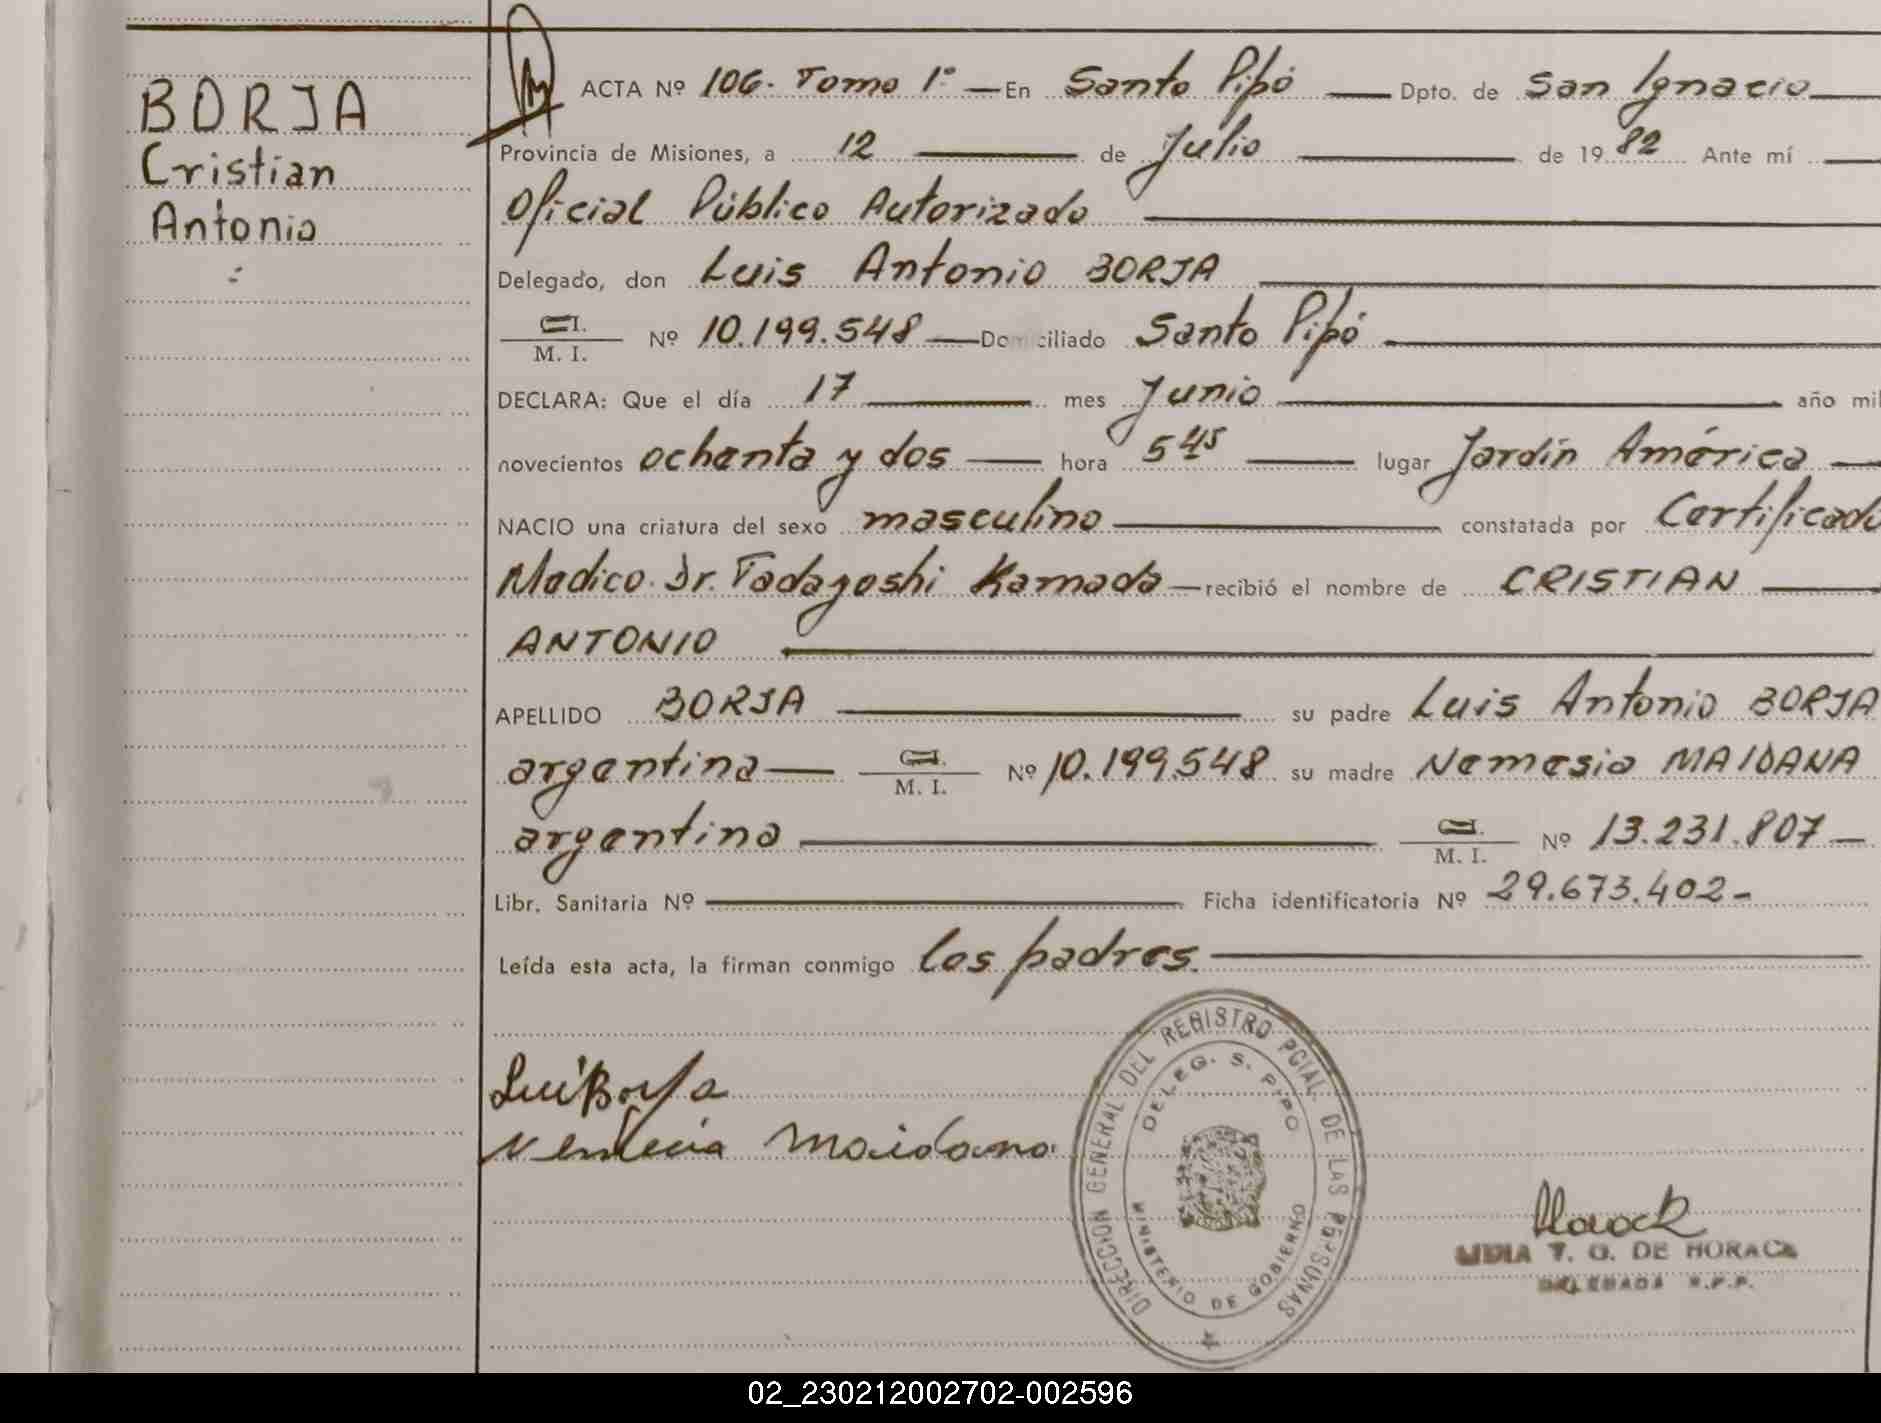 BORJA
Cristian
Antonio
ACTA Nº 106. Tomo 1º — En Santo Pipó — Dpto. de San Ignacio
Provincia de Misiones, a 12 — de Julio — de 1982 Ante mí
Oficial Público Autorizado
Delegado, don Luis Antonio BORJA
C.I.
M. I. Nº 10.199.548 — Domiciliado Santo Pipó
DECLARA: Que el día 17 — mes Junio — año mil
novecientos ochenta y dos — hora 5 45 — lugar Jardín América
NACIO una criatura del sexo masculino — constatada por Certificado
Medico. Dr. Tadayoshi Kamada — recibió el nombre de CRISTIAN
ANTONIO
APELLIDO BORJA — su padre Luis Antonio BORJA
argentina — C.I. M. I. Nº 10.199.548 su madre Nemesia MAIDANA
argentina — C.I. M. I. Nº 13.231.807 —
Libr. Sanitaria Nº — Ficha identificatoria Nº 29.673.402-
Leída esta acta, la firman conmigo los padres.
Luis Borja
Maidana
DIRECCION GENERAL DEL REGISTRO PCIAL. DE LAS PERSONAS
DELEG. S. PIPO
MINISTERIO DE GOBIERNO
LIDIA T. G. DE HORACK
DELEGADA R.P.P.
02_230212002702-002596